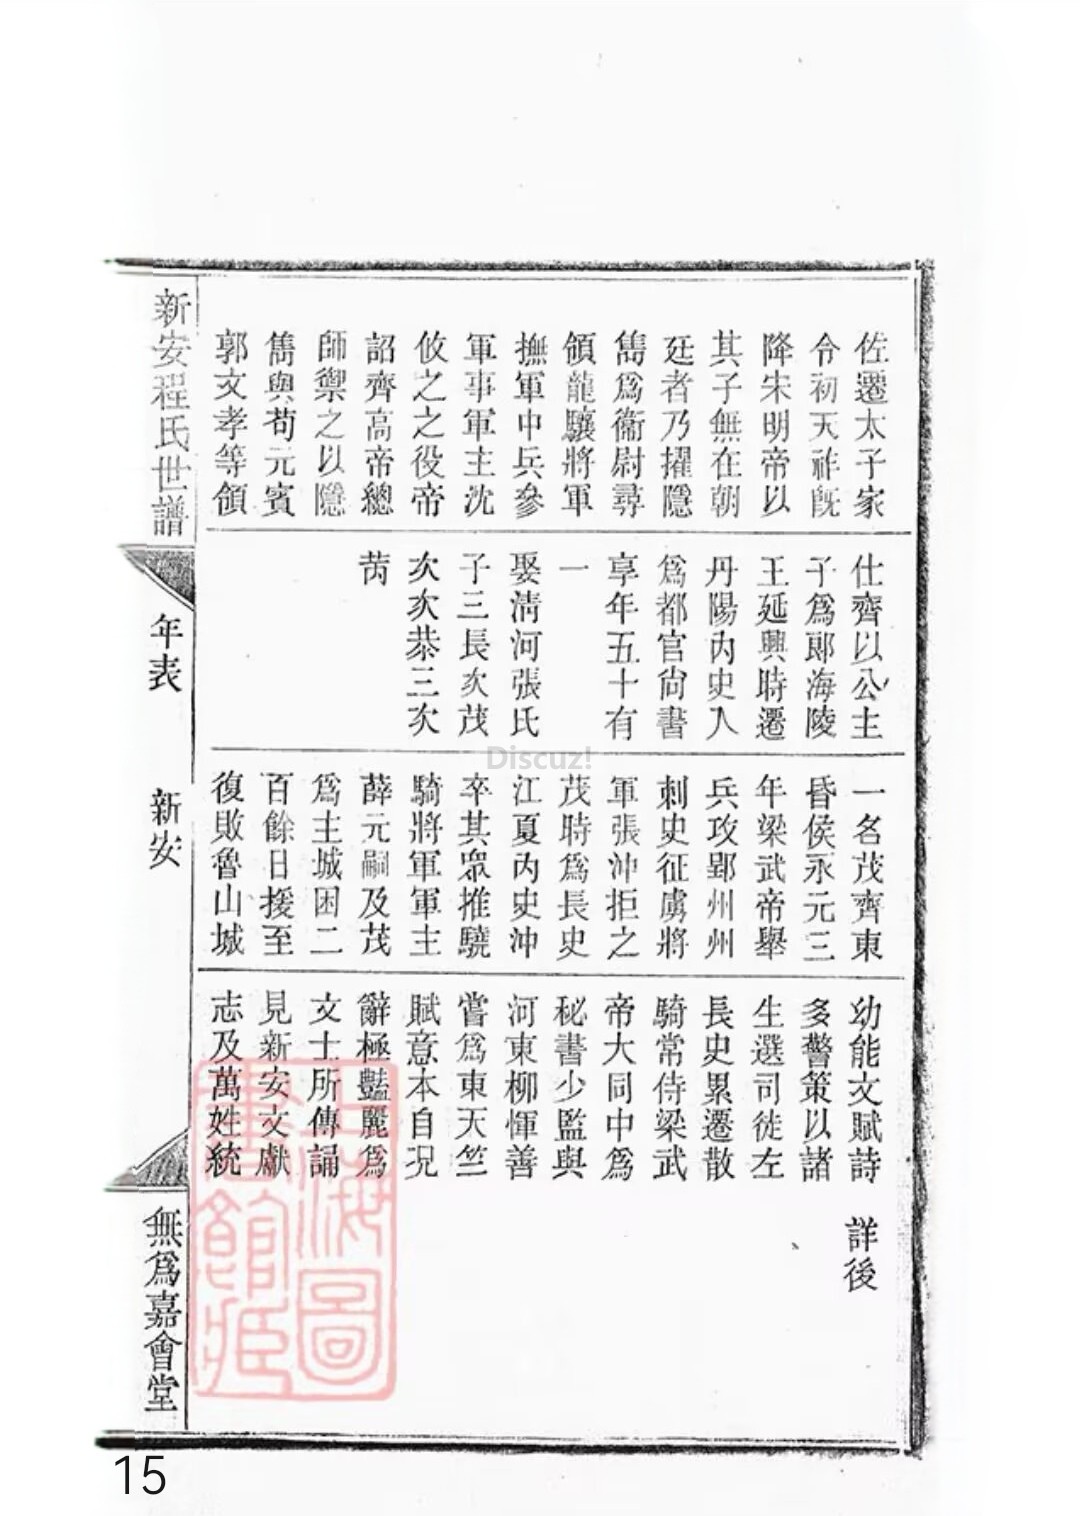 佐遷太子家
令初天祚旣
降宋明帝以
其子無在朝
廷者乃擢隱
雋爲衞尉尋
領龍驤將軍
撫軍中兵參
軍事軍主沈
攸之之役帝
詔齊高帝總
師禦之以隱
雋與苟元賓
郭文孝等領
仕齊以公主
子爲郞海陵
王延興時遷
丹陽內史入
爲都官尙書
享年五十有
一
娶淸河張氏
子三長次茂
次次恭三次
茑
一名茂齊東
昏侯永元三
年梁武帝舉
兵攻郢州州
刺史征虜將
軍張沖拒之
茂時爲長史
江夏內史沖
卒其眾推驍
騎將軍軍主
薛元嗣及茂
爲主城困二
百餘日援至
復敗魯山城
幼能文賦詩
多警策以諸
生選司徒左
長史累遷散
騎常侍梁武
帝大同中爲
秘書少監與
河東柳惲善
嘗爲東天竺
賦意本自況
辭極豔麗爲
文士所傳誦
見新安文獻
志及萬姓統
詳後
新安程氏世譜
年表
新安
無爲嘉會堂
上海圖
書館藏
Discuz!
15